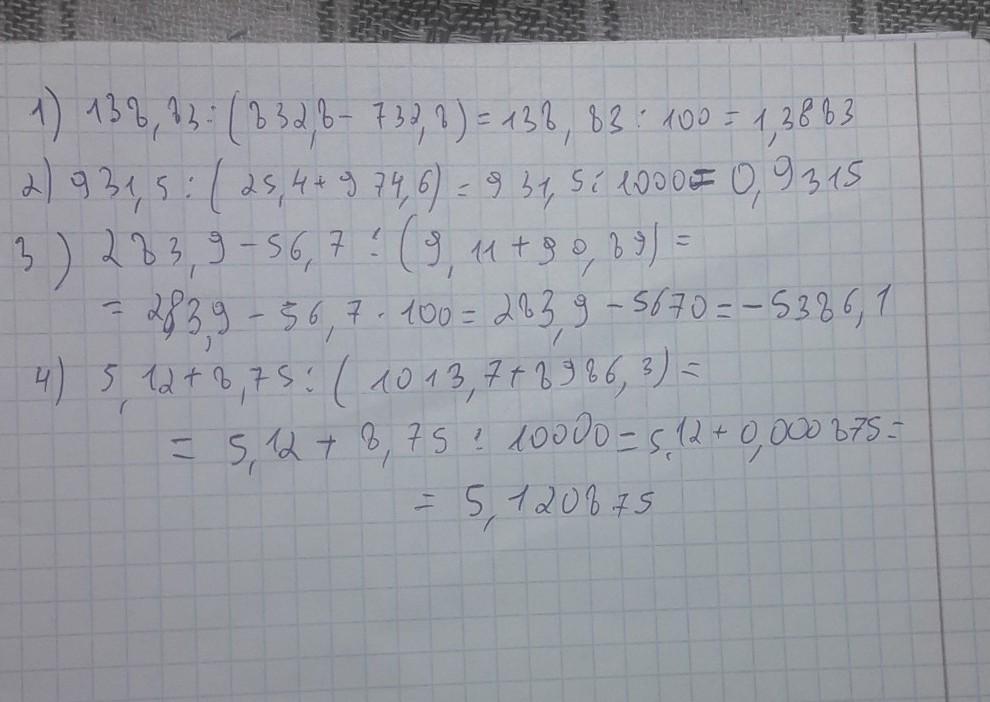 1) 138,83:(832,8-732,8)=138,83:100=1,3883
2) 931,5:(25,4+974,6)=931,5:1000=0,9315
3) 283,9-56,7:(9,11+90,89)=
=283,9-56,7·100=283,9-5670=-5386,1
4) 5,12+8,75:(1013,7+8986,3)=
=5,12+8,75:10000=5,12+0,000875=
=5,120875